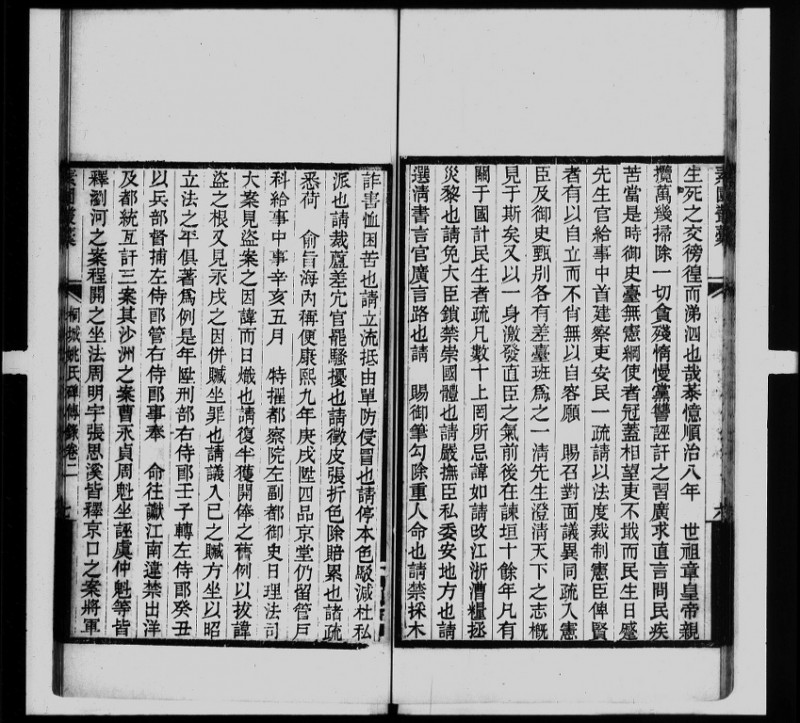 生死之交徬徨而涕泗也哉蓁憶順治八年　世祖章皇帝親
攬萬幾掃除一切貪殘惰慢黨讐誣訐之習廣求直言問民疾
苦當是時御史臺無憲綱使者冠蓋相望吏不戢而民生日蹙
先生官給事中首建察吏安民一疏請以法度裁制憲臣俾賢
者有以自立而不肖無以自容願　賜召對面議異同疏入憲
臣及御史甄别各有差臺班爲之一清先生澄清天下之志概
見于斯矣又以一身激發直臣之氣前後在諫垣十餘年凡有
關于國計民生者疏凡數十上罔所忌諱如請改江浙漕糧拯
災黎也請免大臣鎖禁崇國體也請嚴撫臣私委安地方也請
選清書言官廣言路也請　賜御筆勾除重人命也請禁採木
詐害恤困苦也請立流抵由單防侵冒也請停本色駁減杜私
派也請裁蘆差冗官罷騷擾也請徵皮張折色除賠累也諸疏
悉荷　俞旨海内稱便康熙九年庚戌陞四品京堂仍留管戶
科給事中事辛亥五月　特擢都察院左副都御史日理法司
大案見盜案之因諱而日熾也請復半獲開俸之舊例以拔諱
盜之根又見永戌之因併贓坐罪也請議入已之贓方坐以昭
立法之平俱著爲例是年陞刑部右侍郎壬子轉左侍郎癸丑
以兵部督捕左侍郎管右侍郎事奉　命往讞江南違禁出洋
及都統互訐三案其沙洲之案曹永貞周魁坐誣虞仲魁等皆
釋瀏河之案程開之坐法周明宇張思溪皆釋京口之案將軍
桐城姚氏碑傳錄卷二